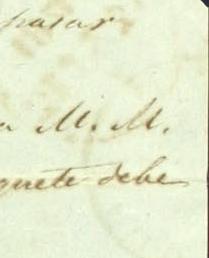 pasar
a M. M.
quete debe